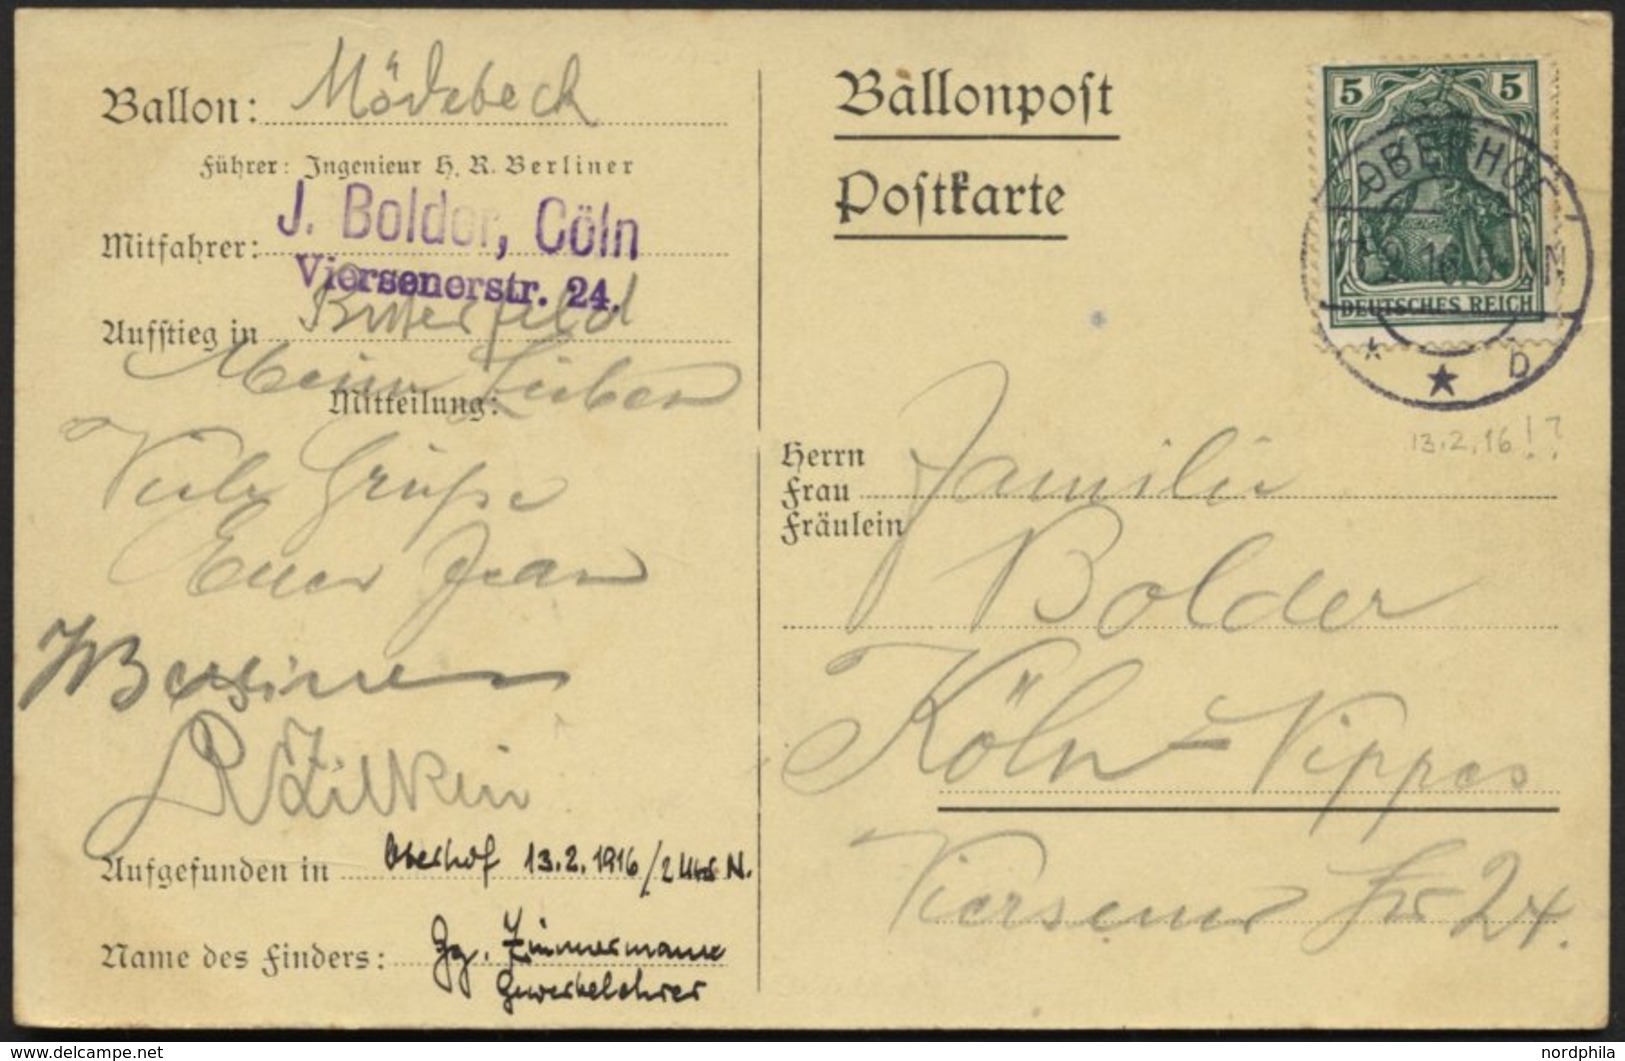 Ballon: Mödebeck
Führer: Ingenieur H. R. Berliner
Mitfahrer: J. Bolder, Cöln
Viersenerstr. 24.
Aufstieg in Bitterfeld
Mitteilung:
Meine Lieben
Viele Grüße
Euer Jean
Berliner
Aufgefunden in Oberhof 13.2.1916/2 Uhr N.
Name des Finders: Gg. Zimmermann
Gewerbelehrer
Ballonpost
Postkarte
5 5
DEUTSCHES REICH
OBERHOF
b
13.2.16!?
Herrn
Frau
Fräulein
Familie
Bolder
Köln-Nippes
Viersener Str 24.
www.delcampe.net
nordphila